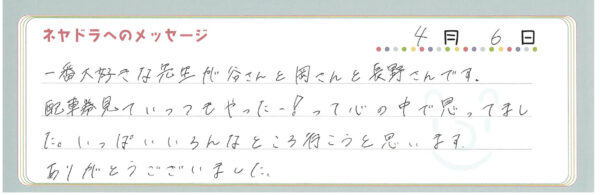 ネヤドラへのメッセージ
4月 6日
一番大好きな先生が谷さんと岡さんと長野さんです。
配車券見ていっつもやったー!って心の中で思ってまし
た。いっぱいいろんなところ行こうと思います。
ありがとうございました。